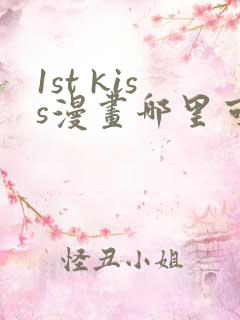 1st kis
s漫畫哪里
怪丑小姐